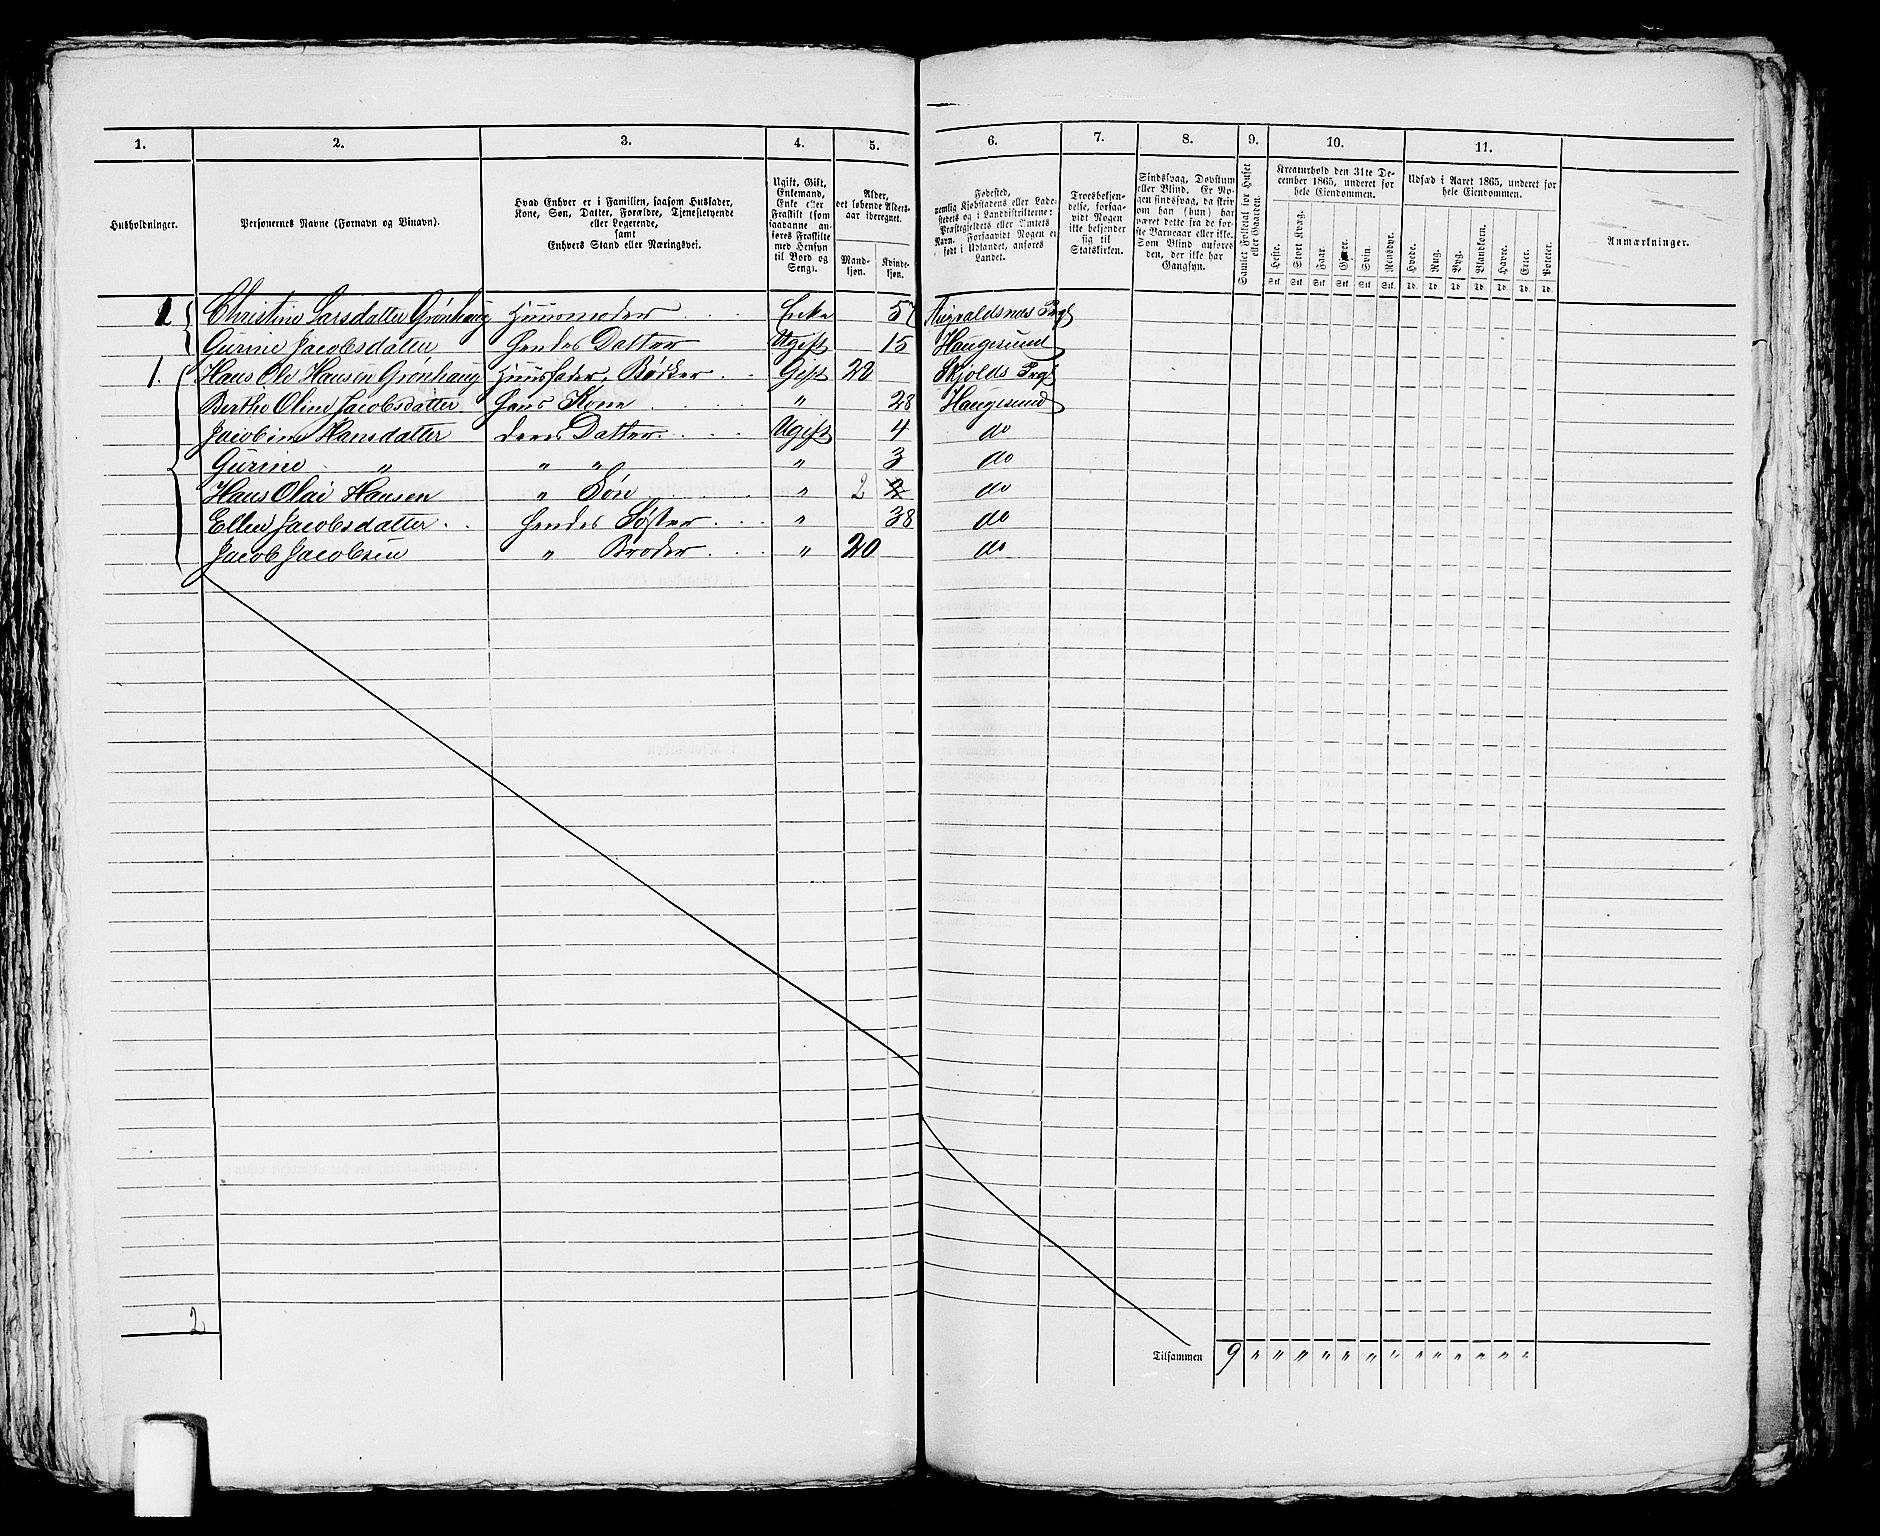 1. 2. 3. 4. 5. 6. 7. 8. 9. 10. 11.
Husholdninger.
Personernes Navne (Fornavn og Binavn).
Hvad Enhver er i Familien, saasom Husfader,
Kone, Søn, Datter, Forældre, Tjenestetyende
eller Logerende,
samt
Enhvers Stand eller Næringsvei.
Ugift, Gift,
Enkemand,
Enke eller
Fraskilt (som
saadanne an-
føres Fraskilte
med Hensyn
til Bord og
Seng).
Alder,
det løbende Alders-
aar iberegnet.
Mand-
kjøn.
Kvinde-
kjøn.
Fødested,
nemlig Kjøbstadens eller Lade-
stedets og i Landdistrikterne:
Præstegjeldets eller Amtets
Navn. Forsaavidt Nogen er
født i Udlandet, anføres
Landet.
Troesbekjen-
delse, forsaa-
vidt Nogen
ikke bekjender
sig til
Statskirken.
Sindssvag, Døvstum
eller Blind. Er No-
gen sindssvag, da skriv
om han (hun) har
været dette fra de før-
ste Barneaar eller ikke.
Som Blind anføres
den, der ikke har
Gangsyn.
Samlet Folketal for Huset
eller Gaarden.
Kreaturhold den 31te De-
cember 1865, underet for
hele Eiendommen.
Heste. Stort Kvæg. Faar. Gjeder. Svin. Rensdyr.
Stk. Stk. Stk. Stk. Stk. Stk.
Udsæd i Aaret 1865, underet for
hele Eiendommen.
Hvede. Rug. Byg. Blandkorn. Havre. Erter. Poteter.
Td. Td. Td. Td. Td. Td. Td.
Anmærkninger.
1 Christine Larsdatter Grønhaug Huusmoder Enke 57 Augvaldsnæs Prgl
Gurine Jacobsdatter hendes Datter Ugift 15 Haugesund
1. Hans Ole Hansen Grønhaug Huusfader, Bødker Gift 28 Skjolds Prgl
Berthe Oline Jacobsdatter hans Kone " 28 Haugesund
Jacobine Hansdatter deres Datter Ugift 4 do
Gurine " " " " 3 do
Hans Olai Hansen " Søn " 2 2 do
Ellen Jacobsdatter hendes Søster " 38 do
Jacob Jacobsen " Broder " 20 do
2
Tilsammen 9 " " " " " " " " " " " " "